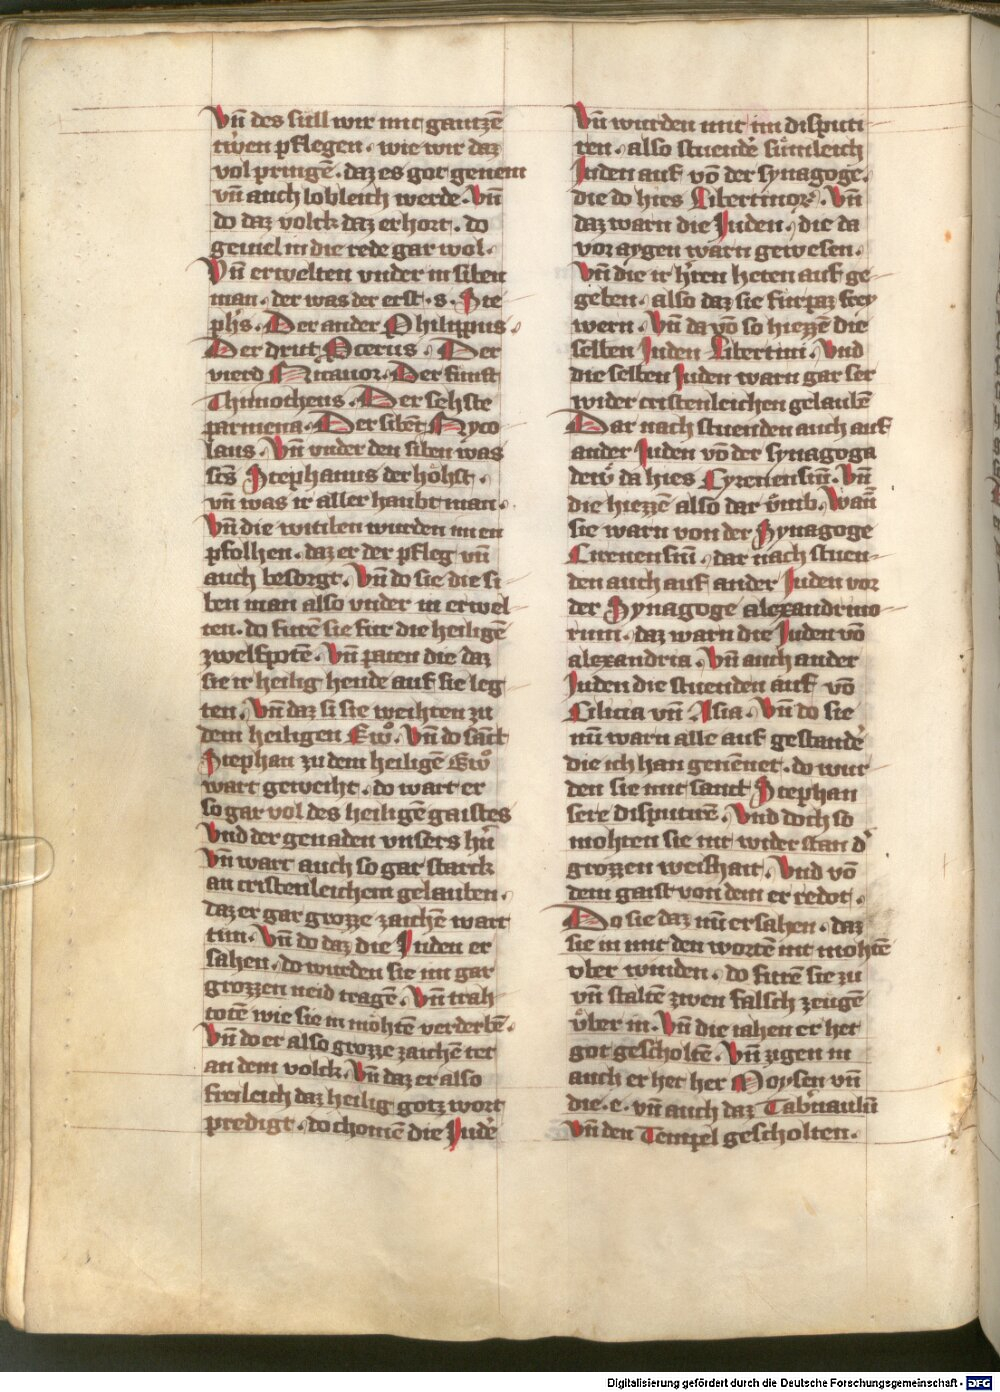 Vñ des süll wir mit gantzē
triven pflegen · wie wir daz
vol pringē · daz es got genem
vñ auch lobleich werde · Vñ
do daz volck daz erhort · do
geuiel in die rede gar wol ·
Vñ erwelten vnder in siben
man · der was der erst · s · Ste
phs̄ · Der ander Philippus ·
Der drut Pcerus · Der
vierd Nicanor · Der fünft
Thimotheus · Der sehste
parmena · Der sibēt Nyco
laus · Vñ vnder den siben was
sc̄s Stephanus der höhst ·
vñ was ir aller haubt man ·
Vñ die witiben wurden im en
pfolhen · daz er der pfleg vñ
auch besorgt · Vñ do sie die si
ben man also vnder in erwel
ten · do furē sie für die heiligē
zwelfpotē · Vñ paten die daz
sie ir heilig hende auf sie leg
ten · Vñ daz si sie weihten zu
dem heiligen Ew̉ · Vñ do sāct
Stephan zu dem heiligē Ew̉
wart geweiht · do wart er
so gar vol des heiligē gaistes
Vnd der genaden vnsers hr̄n
Vñ wart auch so gar starck
an cristenleichem gelauben ·
Daz er gar grozze zaichē wart
tun · Vñ do daz die Juden er
sahen · do wurden sie im gar
grozzen neid tragē · Vñ trah
totē wie sie in möhtē verderbē ·
Vñ do er also grozze zaichē tet
an dem volck · Vñ daz er also
freileich daz heilig gotz wort
predigt · do chomē die Judē
Vñ wurden mit im disputi
ren · also stuendē sümleich
Juden auf vō der synagoge ·
die do hies Libertinor̄ · Vñ
daz warn die Juden · die da
vor aygen warn gewesen ·
Vñ die ir hr̄ren heten auf ge
geben · also daz sie fürpaz frey
wern · Vñ da vō so hiezzē die
selben Juden Libertini · Vnd
die selben Juden warn gar ser
wider cristenleichen gelaubē
Dar nach stuenden auch auf
ander Juden vō der synagoga
den̄ da hies Cyrenensiū · Vñ
die hiezzē also dar vmb · Wañ
sie warn von der Synagoge
Cirenensiū · dar nach stuen
den auch auf ander Juden vor
der Synagoge alexandrino
rum · daz warn die Juden vō
alexandria · Vñ auch ander
Juden die stuenden auf vō
Cilicia vñ Asia · Vñ do sie
nū warn alle auf gestandē
die ich han genēnet · do wur
den sie mit sanct Stephan
sere disputirē · Vnd doch so
mohten sie nit wider stan d̉
grozzen weishait · Vnd vō
dem gaist von dem er redot ·
Do sie daz nū ersahen · daz
sie in mit den wortē nit mohtē
vber winden · do furē sie zu
vñ staltē zwen falsch zeugē
über in · Vñ die iahen er het
got gescholtē · Vñ zigen in
auch er het her Moysen vñ
die · e · vñ auch daz Tabn̄aulū
Vñ den Tempel gescholten ·
Digitalisierung gefördert durch die Deutsche Forschungsgemeinschaft - DFG